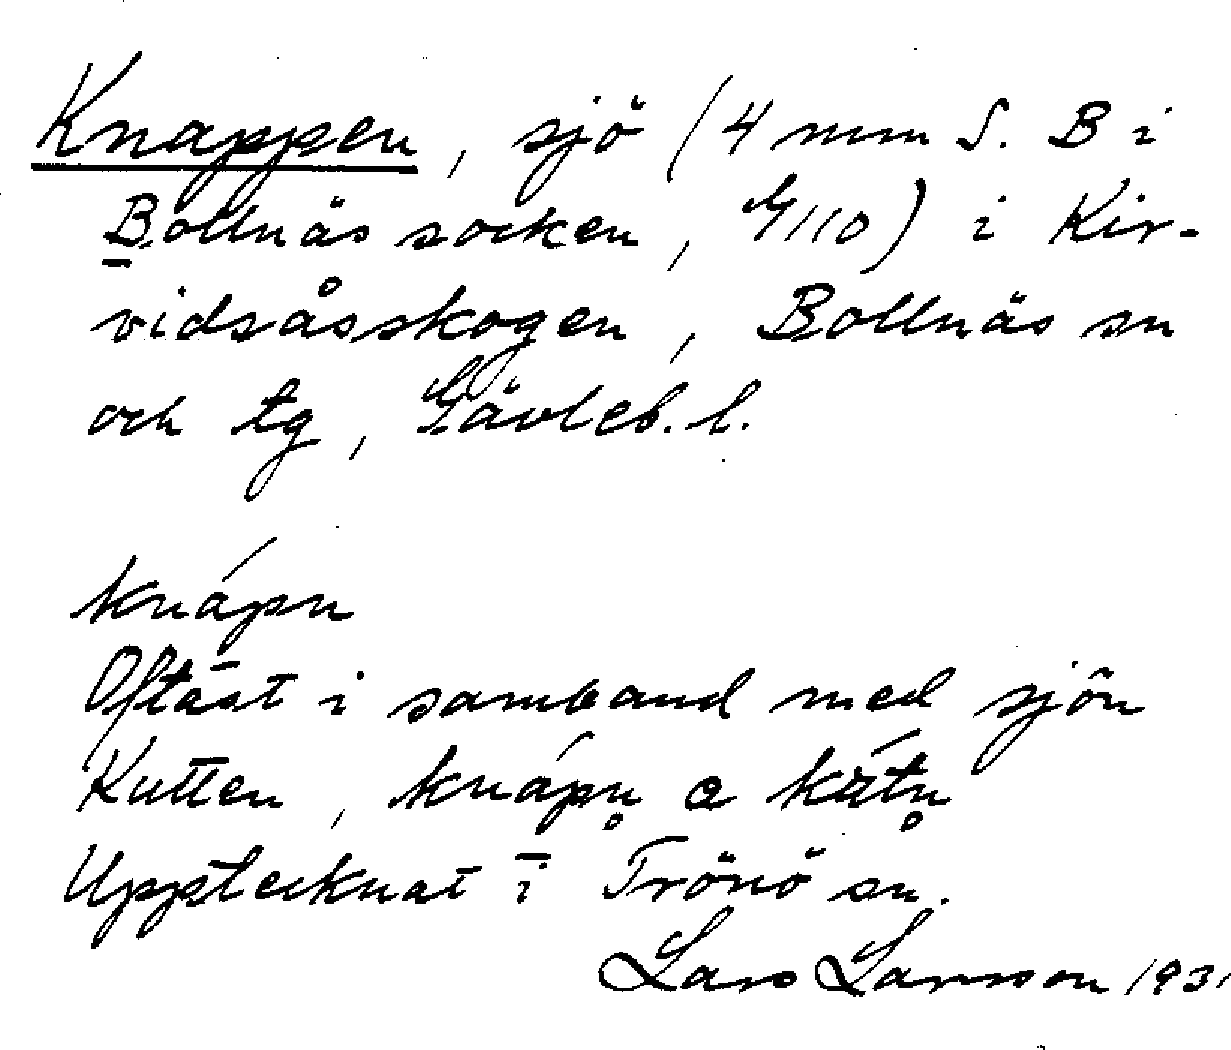 Knappen, sjö (4 mm S. B i
Bollnäs socken, G110) i Kir-
vidsåsskogen, Bollnäs sn
och tg, Gävleb. l.
knápn
Oftast i samband med sjön
Kutten, knápn̥ a kʉ́tn̥
Upptecknat i Trönö sn.
Lars Larsson 1931